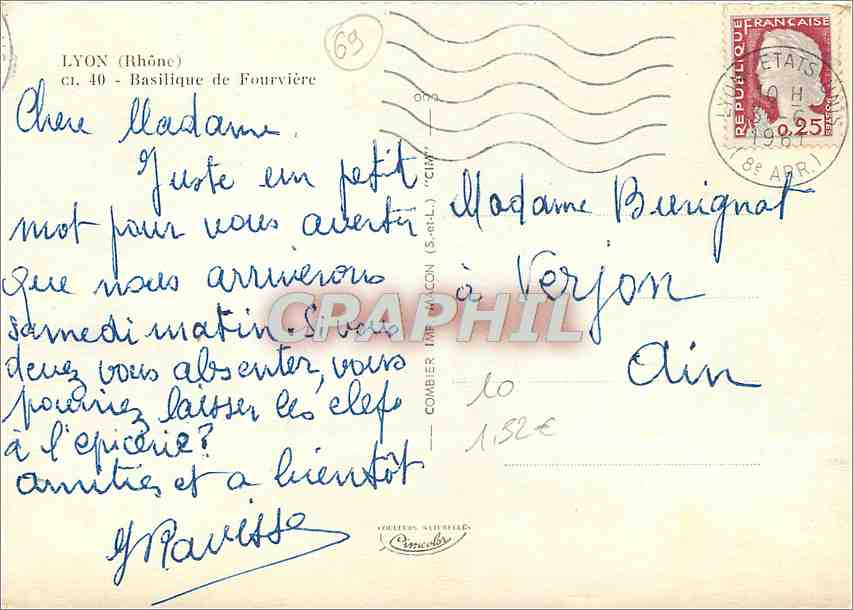 LYON (Rhône)
CI. 40 - Basilique de Fourvière
69
Chere Madame.
Juste un petit
mot pour vous avertir
que nous arriverons
samedi matin. Si vous
devez vous absenter, vous
pourriez laisser les clefs
à l'epicerie?
amitiés et a bientôt
COMBIER IMP. MACON (S.-et-L.) "CIM"
REPUBLIQUE FRANÇAISE
0,25
10 H
1961
(8e ARR.)
Madame Burignat
à Verjon
Ain
10
1,52€
COULEURS NATURELLES
Cimcolor
CPAPHIL